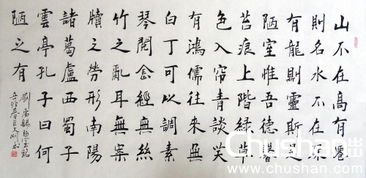 山不在高有僊
則名水不在深
有龍則靈斯是
陋室惟吾德馨
苔痕上階綠草
色入簾青談笑
有鴻儒往來無
白丁可以調素
琴閱金經無絲
竹之亂耳無案
牘之勞形南陽
諸葛廬西蜀子
雲亭孔子曰何
陋之有
劉禹錫陋室銘
Chushan
www.chushan.com